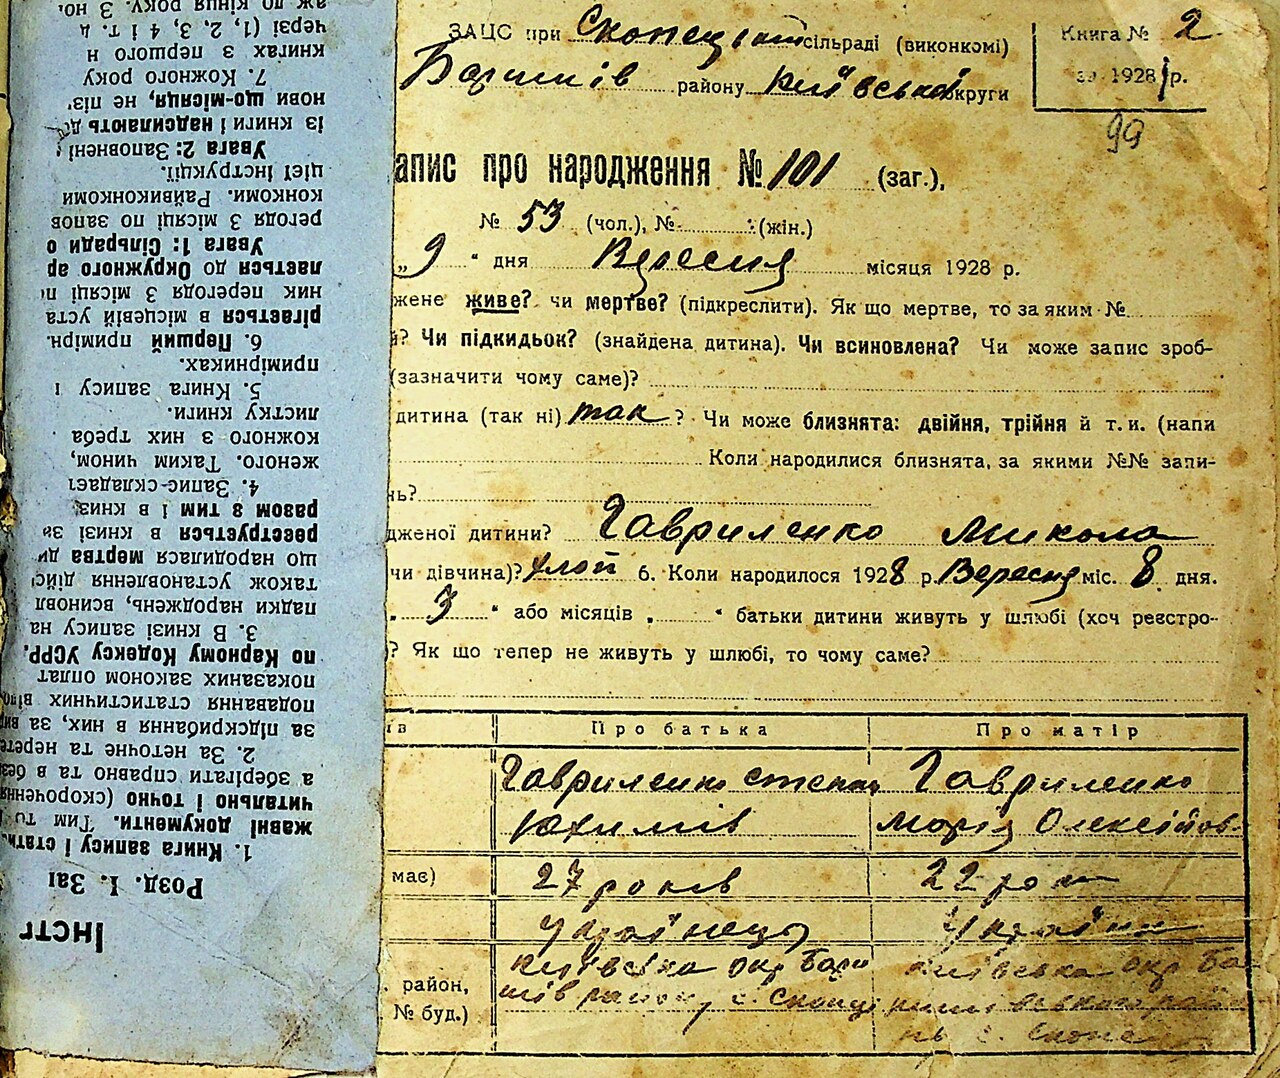 ЗАЦС при Скопецькій сільраді (виконкомі)
Баришів району Київської округи
Книга № 2
за 1928 р.
99
апис про народження № 101 (заг.),
№ 53 (чол.), № (жін.)
„ 9 “ дня Вересня місяця 1928 р.
жене живе? чи мертве? (підкреслити). Як що мертве, то за яким №
й? Чи підкидьок? (знайдена дитина). Чи всиновлена? Чи може запис зроб-
(зазначити чому саме)?
дитина (так ні) так ? Чи може близнята: двійня, трійня й т. и. (напи
Коли народилися близнята, за якими №№ запи-
нь?
дженої дитини? Гавриленко Микола
чи дівчина)? хлоп 6. Коли народилось 1928 р. Вересня міс. 8 дня.
„ 3 “ або місяців „ “ батьки дитини живуть у шлюбі (хоч реєстро-
? Як що тепер не живуть у шлюбі, то чому саме?
їв Про батька Про матір
Гавриленко Степан Гавриленко
Юхимів Марія Олексіїов
має) 27 років 22 рок
Українець Українк
район, Київська окр Бари Київська окр Ба
№ буд.) шів району с. Скопці
с. Скопе
Інстр
Розд. І. Заг
1. Книга запису і стати
жавні документи. Тим то
читально і точно (скорочення
а зберігати справно та в без
2. За неточне та нерете
за підскрибання в них, за ви
подавання статистичних відо
показаних законом оплат
по Карному Кодексу УСРР.
3. В книзі запису на
падки народжень, всиновл
також установлення дійс
що народилася мертва ди
реєструється в книзі за
разом з тим і в книз
4. Запис складаєт
женого. Таким чином,
кожного з них треба
листку книги.
5. Книга запису і
примірниках.
6. Перший примірн
рігається в місцевій уста
ник перегодя 3 місяці п
лається до Окружного ар
Увага 1: Сільради о
регодя 3 місяці по запов
конкоми. Райвиконкоми
цієї інструкції.
Увага 2: Заповнені
із книги і надсилають до
нови що-місяця, не піз
7. Кожного року
книгах з першого н
черзі (1, 2, 3, 4 і т. д
аж до кінця року. З но